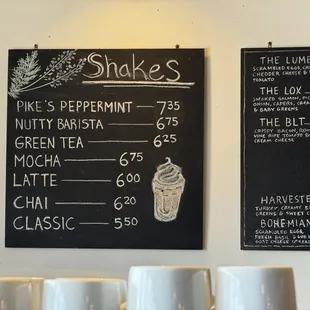 Shakes
PIKE'S PEPPERMINT 7.35
NUTTY BARISTA 6.75
GREEN TEA 6.25
MOCHA 6.75
LATTE 6.00
CHAI 6.20
CLASSIC 5.50
THE LUMB
SCRAMBLED EGGS,
CHEDDER CHEESE &
TOMATO
THE LOX
SMOKED SALMON,
ONION, CAPERS,
& BABY GREENS
THE BLT
CRISPY BACON, ROM
VINE RIPE TOMATO
CREAM CHEESE
HARVESTE
TURKEY, CREAMY B
GREENS & SWEET C
BOHEMIAN
SCRAMBLED EGGS
FRESH BASIL
GOAT CHEESE